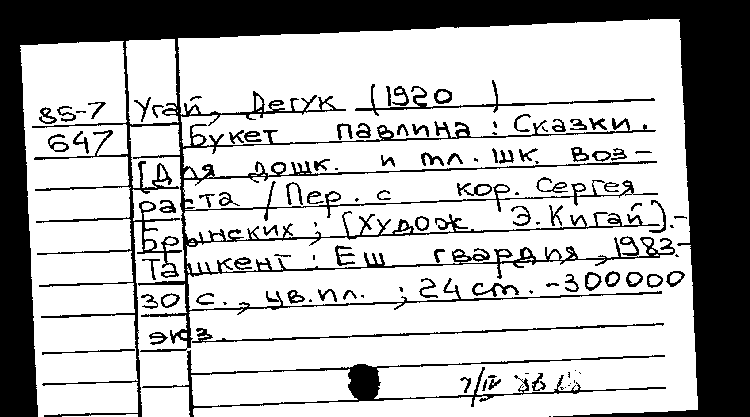 85-7 Угай, Дегук (1920 )
647 Букет павлина : Сказки.
[Для дошк. и мл. шк. воз-
раста / Пер. с кор. Сергея
Брынских ; [Худож. Э. Кигай].-
Ташкент : Еш гвардия, 1983.-
30 с., цв.ил. ; 24 cm. -300000
экз.
7/IV